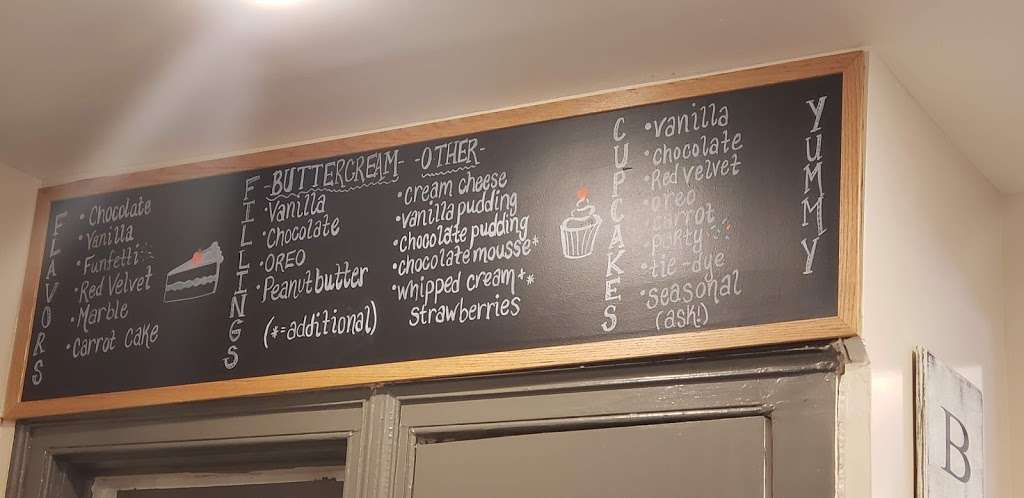 FLAVORS
• Chocolate
• Vanilla
• Funfetti
• Red Velvet
• Marble
• Carrot Cake
FILLINGS
-BUTTERCREAM-
• Vanilla
• Chocolate
• OREO
• Peanut butter
(*=additional)
-OTHER-
• cream cheese
• vanilla pudding
• chocolate pudding
• chocolate mousse*
• whipped cream + *
strawberries
CUPCAKES
• vanilla
• chocolate
• Red velvet
• oreo
• carrot
• party
• tie-dye
• seasonal
(ask!)
YUMMY
B